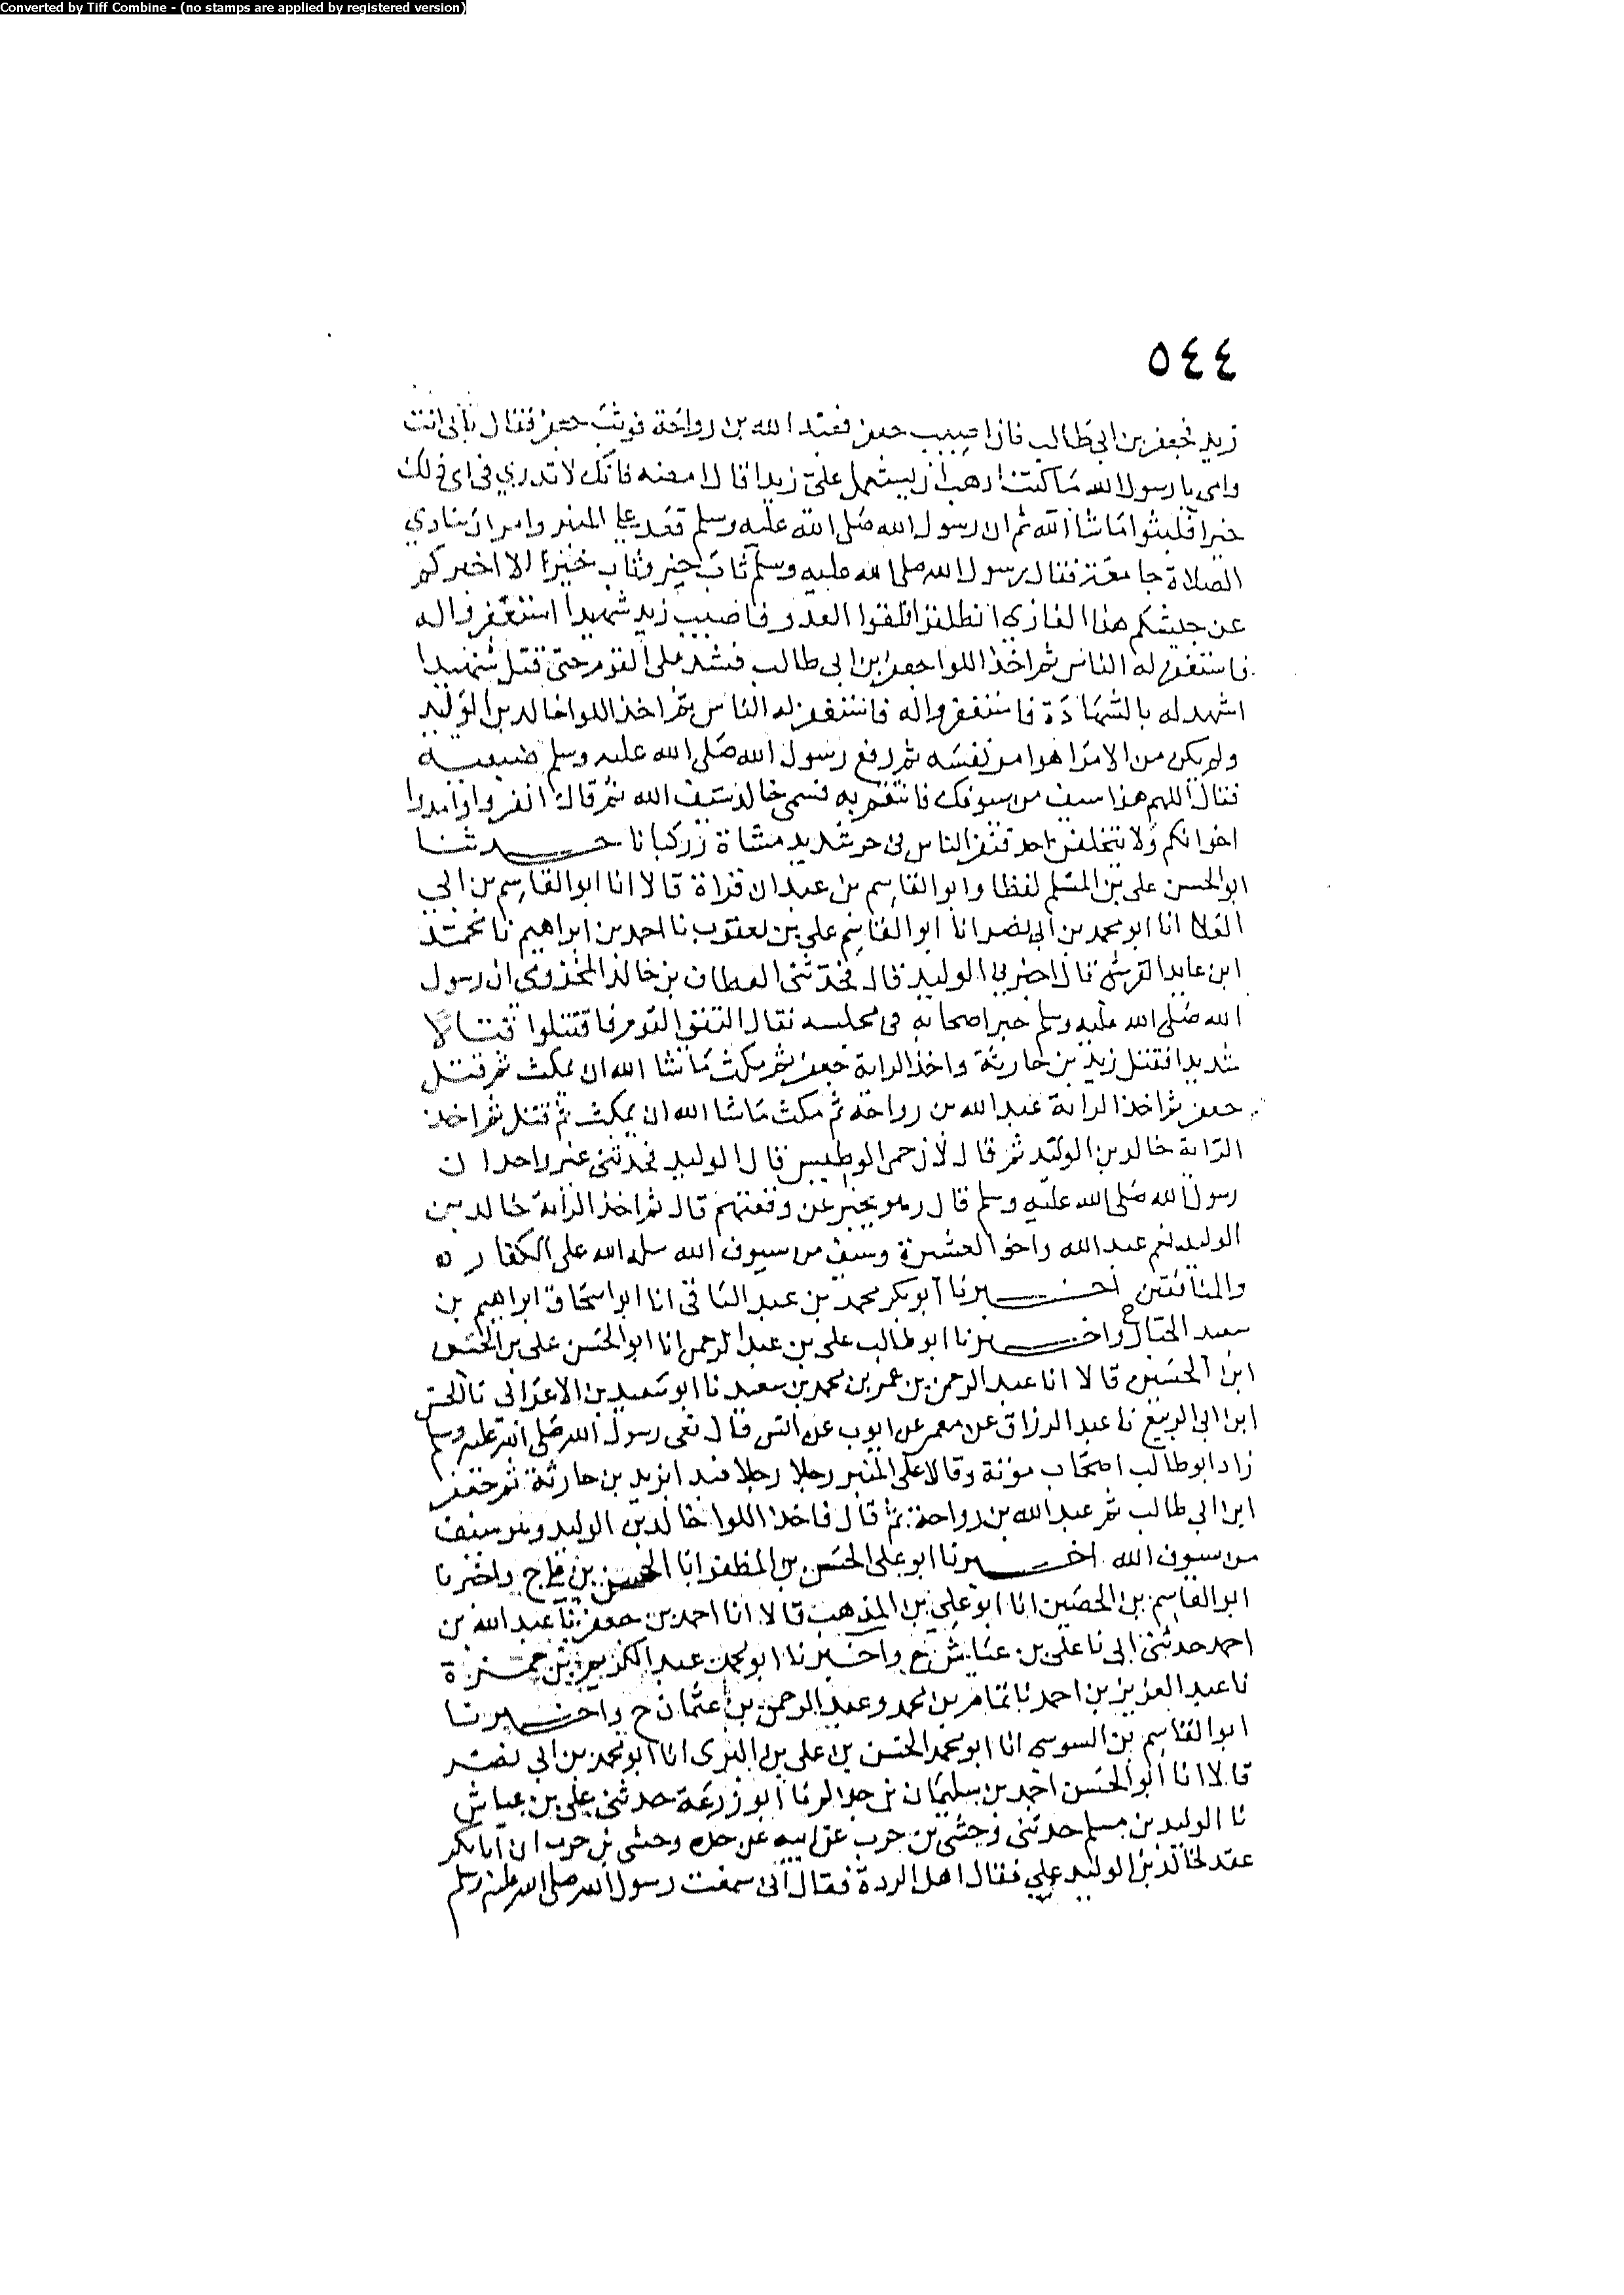 Converted by Tiff Combine - (no stamps are applied by registered version)
٥٤٤
زيد فجعفر بن ابي طالب فان اصيب جعفر فعبد الله بن رواحة فوثب جعفر فقال بأبي انت
وامي يا رسول الله ما كنت ارهب ان يستعمل علي زيدا قال امضه فانك لا تدري في اي ذلك
خير فلبثوا ما شا الله ثم ان رسول الله صلى الله عليه وسلم قعد على المنبر وامر ان ينادي
الصلاة جامعة فقال رسول الله صلى الله عليه وسلم ثاب خير وثاب خير الا اخبركم
عن جيشكم هذا الغازي انطلقوا فلقوا العدو فاصيب زيد شهيدا استغفروا له
فاستغفر له الناس ثم اخذ اللوا جعفر بن ابي طالب فشد على القوم حتى قتل شهيدا
اشهد له بالشهادة فاستغفروا له فاستغفر له الناس ثم اخذ اللوا خالد بن الوليد
ولم يكن من الامرا هو امر نفسه ثم رفع رسول الله صلى الله عليه وسلم ضبعيه
فقال اللهم هذا سيف من سيوفك فانتقم به فسمي خالد سيف الله ثم قال انفروا وامدوا
اخوانكم ولا يتخلفن احد فنفر الناس في حر شديد مشاة وركبانا حدثنا
ابو الحسن علي بن المسلم لفظا وابو القاسم بن عبدان قراة قالا انا ابو القاسم بن ابي
العلا انا ابو محمد بن ابي نصر انا ابو القاسم علي بن يعقوب نا احمد بن ابراهيم نا محمد
ابن عايد القرشي قال اخبرني الوليد قال فحدثني العطاف بن خالد المخزومي ان رسول
الله صلى الله عليه وسلم خبر اصحابه في مجلسه فقال التقى القوم فاقتتلوا قتالا
شديدا فقتل زيد بن حارثة واخذ الراية جعفر ثم مكث ما شا الله ان يمكث ثم قتل
جعفر ثم اخذ الراية عبد الله بن رواحة ثم مكث ما شا الله ان يمكث ثم قتل ثم اخذ
الراية خالد بن الوليد ثم قال الان حمي الوطيس قال الوليد فحدثني غير واحد ان
رسول الله صلى الله عليه وسلم قال وهو يخبر عن وقعتهم قال ثم اخذ الراية خالد بن
الوليد نعم عبد الله واخو العشيرة وسيف من سيوف الله سله الله على الكفار
والمنافقين اخبرنا ابو بكر محمد بن عبد الباقي انا ابو اسحاق ابراهيم بن
سعيد الحبال ح واخبرنا ابو طالب علي بن عبد الرحمن انا ابو الحسن علي بن الحسن
ابن الحسين قالا انا عبد الرحمن بن عمر بن محمد بن سعيد نا ابو سعيد بن الاعرابي نا الحسن
ابن ابي الربيع نا عبد الرزاق عن معمر عن ايوب عن انس قال نعى رسول الله صلى الله عليه وسلم
زاد ابو طالب اصحاب موتة وقالا على المنبر رجلا رجلا فبدا بزيد بن حارثة ثم جعفر
ابن ابي طالب ثم عبد الله بن رواحة ثم قال فاخذ اللوا خالد بن الوليد وهو سيف
من سيوف الله اخبرنا ابو علي الحسن بن المظفر انا الحسن بن علي ح واخبرنا
ابو القاسم بن الحصين انا ابو علي بن المذهب قالا انا احمد بن جعفر نا عبد الله بن
احمد حدثني ابي نا علي بن عياش ح واخبرنا ابو محمد عبد الكريم بن حمزة
نا عبد العزيز بن احمد نا تمام بن محمد وعبد الرحمن بن عثمان ح واخبرنا
ابو القاسم بن السوسي انا ابو محمد الحسن بن علي بن البري انا ابو محمد بن ابي نصر
قالا انا ابو الحسن احمد بن سليمان بن حذلم نا ابو زرعة حدثني علي بن عياش
نا الوليد بن مسلم حدثني وحشي بن حرب عن ابيه عن جده وحشي بن حرب ان ابا بكر
عقد لخالد بن الوليد على قتال اهل الردة فقال اني سمعت رسول الله صلى الله عليه وسلم